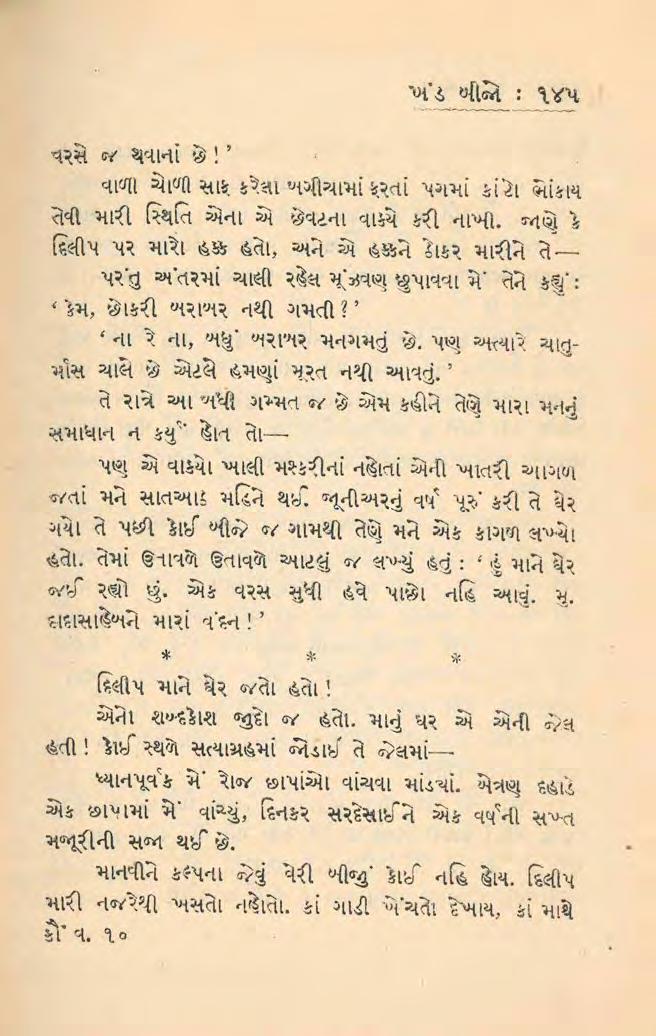 ખંડ બીજો : ૧૪૫
વરસે જ થવાનાં છે!’
વાળી ચોળી સાફ કરેલા બગીચામાં ફરતાં પગમાં કાંટો ભોંકાય
તેવી મારી સ્થિતિ એના એ છેવટના વાક્યે કરી નાખી. જાણે કે
દિલીપ પર મારો હક્ક હતો, અને એ હક્કને ઠોકર મારીને તે—
પરંતુ અંતરમાં ચાલી રહેલ મૂંઝવણ છુપાવવા મેં તેને કહ્યું :
‘ કેમ, છોકરી બરાબર નથી ગમતી ?’
‘ ના રે ના, બધું બરાબર મનગમતું છે. પણ અત્યારે ચાતુ-
ર્માસ ચાલે છે એટલે હમણાં મૂરત નથી આવતું.’
તે રાત્રે આ બધી ગમ્મત જ છે એમ કહીને તેણે મારા મનનું
સમાધાન ન કર્યું હોત તો—
પણ એ વાક્યો ખાલી મશ્કરીનાં નહોતાં એની ખાતરી આગળ
જતાં મને સાતઆઠ મહિને થઈ. જૂનીઅરનું વર્ષ પૂરું કરી તે ઘેર
ગયો તે પછી કોઈ બીજે જ ગામથી તેણે મને એક કાગળ લખ્યો
હતો. તેમાં ઉતાવળે ઉતાવળે આટલું જ લખ્યું હતું : ‘ હું માને ઘેર
જઈ રહ્યો છું. એક વરસ સુધી હવે પાછો નહિ આવું. મુ.
દાદાસાહેબને મારાં વંદન !’
* * *
દિલીપ માને ઘેર જતો હતો !
એનો શબ્દકોશ જુદો જ હતો. માનું ઘર એ એની જેલ
હતી ! કોઈ સ્થળે સત્યાગ્રહમાં જોડાઈ તે જેલમાં—
ધ્યાનપૂર્વક મેં રોજ છાપાંઓ વાંચવા માંડ્યાં. બેત્રણ દહાડે
એક છાપામાં મેં વાંચ્યું, દિનકર સરદેસાઈને એક વર્ષની સખ્ત
મજૂરીની સજા થઈ છે.
માનવીને કલ્પના જેવું વેરી બીજું કોઈ નહિ હોય. દિલીપ
મારી નજરેથી ખસતો નહોતો. કાં ગાડી ખેંચતો દેખાય, કાં માથે
કૌં વ. ૧૦